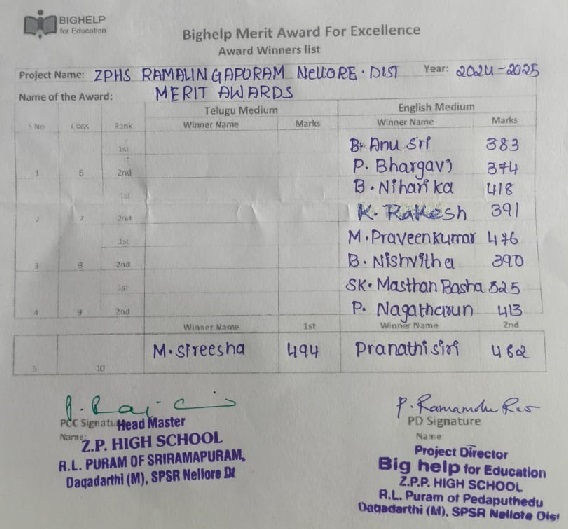 BIGHELP
for Education
Bighelp Merit Award For Excellence
Award Winners list
Project Name: ZPHS RAMALINGAPURAM NELLORE. DIST Year: 2024-2025
Name of the Award: MERIT AWARDS
Telugu Medium English Medium
S No Class Rank Winner Name Marks Winner Name Marks
1st B. Anu Sri 383
1 6 2nd P. Bhargavi 374
1st B. Niharika 418
2 7 2nd K. Rakesh 391
1st M. Praveen kumar 476
3 8 2nd B. Nishvitha 390
1st SK. Masthan Basha 525
4 9 2nd P. Nagatharun 413
Winner Name 1st Winner Name 2nd
5 10 M. Sireesha 494 Pranathi siri 482
PCC Signature Head Master
Name:
Z.P. HIGH SCHOOL
R.L. PURAM OF SRIRAMAPURAM,
Dagadarthi (M), SPSR Nellore Dt
P. Ramamohan Rao
PD Signature
Name
Project Director
Big help for Education
Z.P.P. HIGH SCHOOL
R.L. Puram of Pedaputhedu
Dagadarthi (M), SPSR Nellore Dist